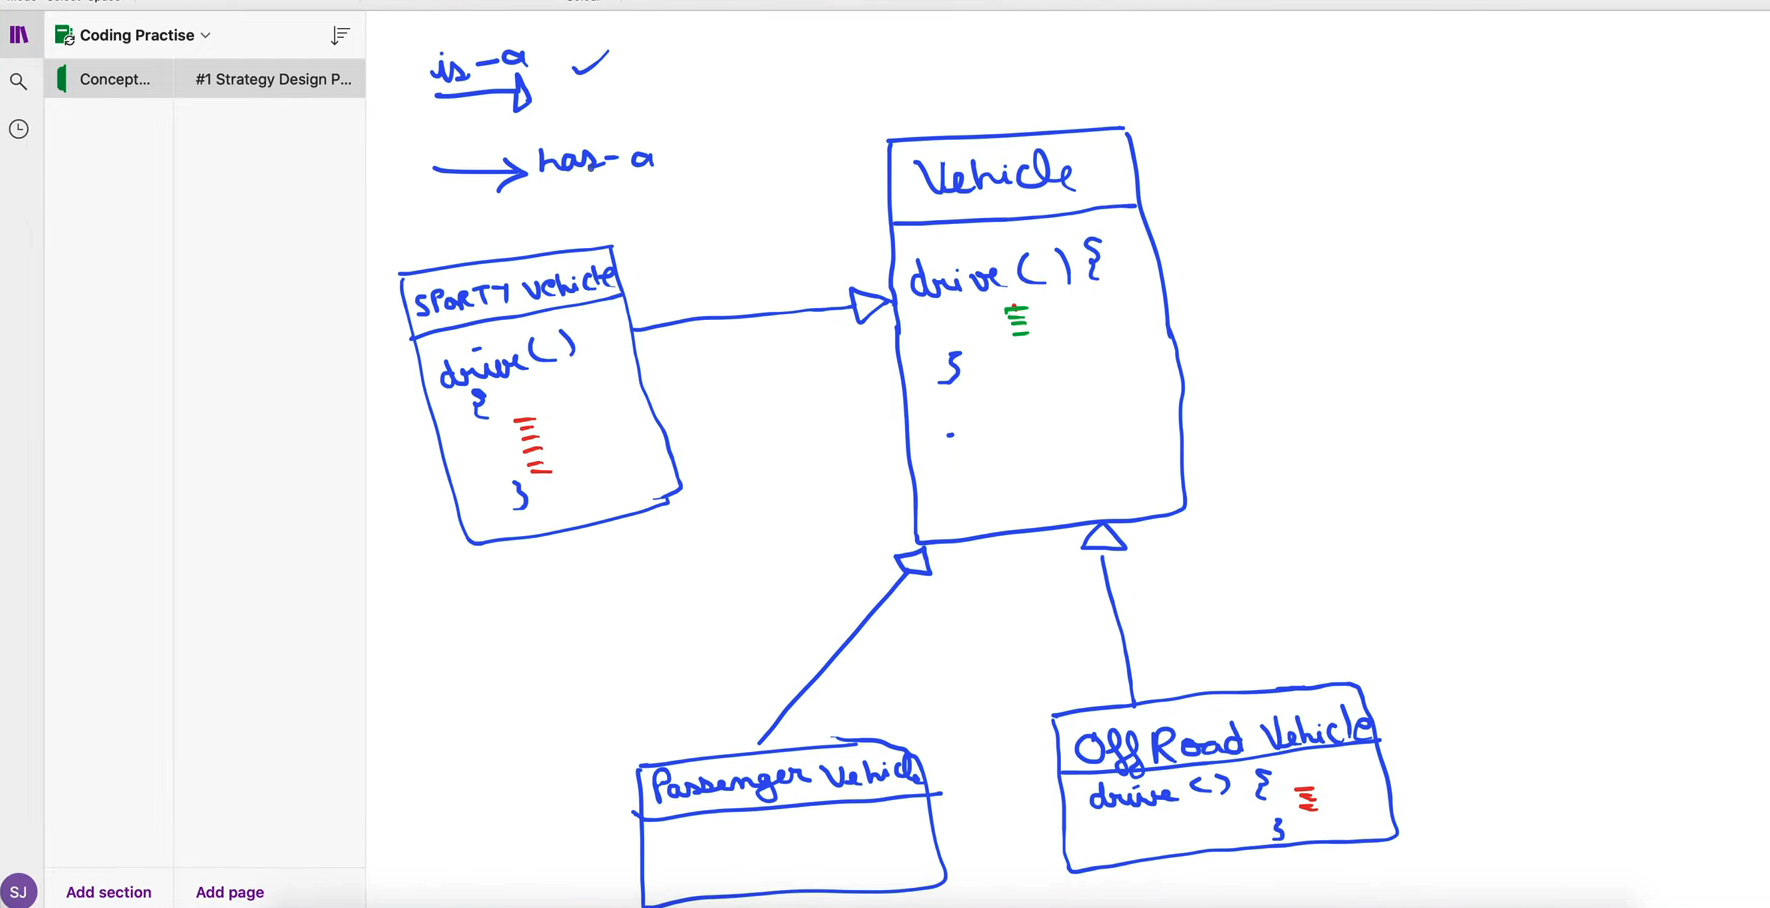 Coding Practise
Concept...
#1 Strategy Design P...
is-a
has-a
Vehicle
drive() {
}
SPORTY Vehicle
drive()
{
}
Passenger Vehicle
Off Road Vehicle
drive () {
}
SJ
Add section
Add page